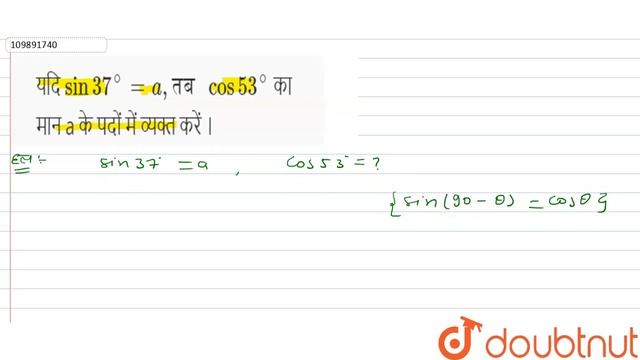 109891740
यदि sin 37° = a, तब cos 53° का
मान a के पदों में व्यक्त करें ।
sin 37° = a , cos 53° = ?
{sin(90 - θ) = cos θ}
doubtnut